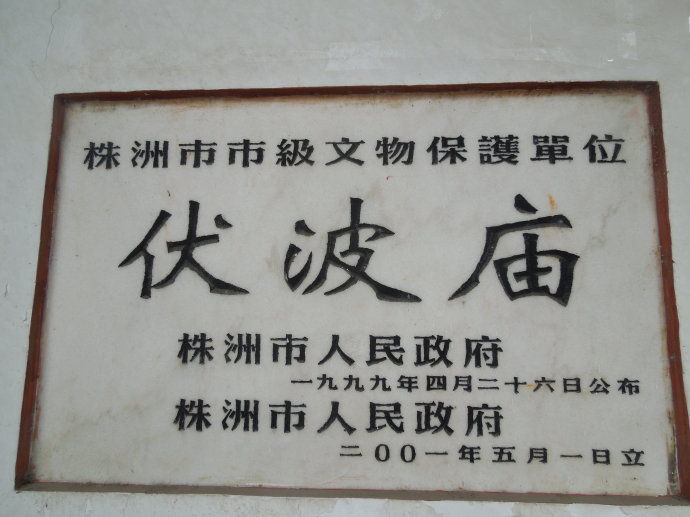 株洲市市級文物保護單位
伏波庙
株洲市人民政府
一九九九年四月二十六日公布
株洲市人民政府
二00一年五月一日立